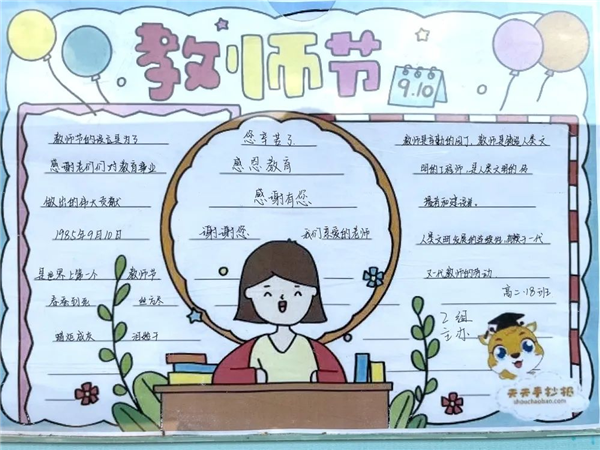 教师节
9.10
教师节的设立是为了
感谢老师们对教育事业
做出的伟大贡献
1985年9月10日
是世界上第一个 教师节
春蚕到死 丝方尽
蜡炬成灰 泪始干
您辛苦了
感恩教育
感谢有您
谢谢您 我们亲爱的老师
教师是辛勤的园丁,教师是铸造人类文
明的工程师,是人类文明的
播者和建设者。
人类文明发展的连续性
又一代教师的劳动
高二·18班
2组
主办
天天手抄报
shouchaobao.com